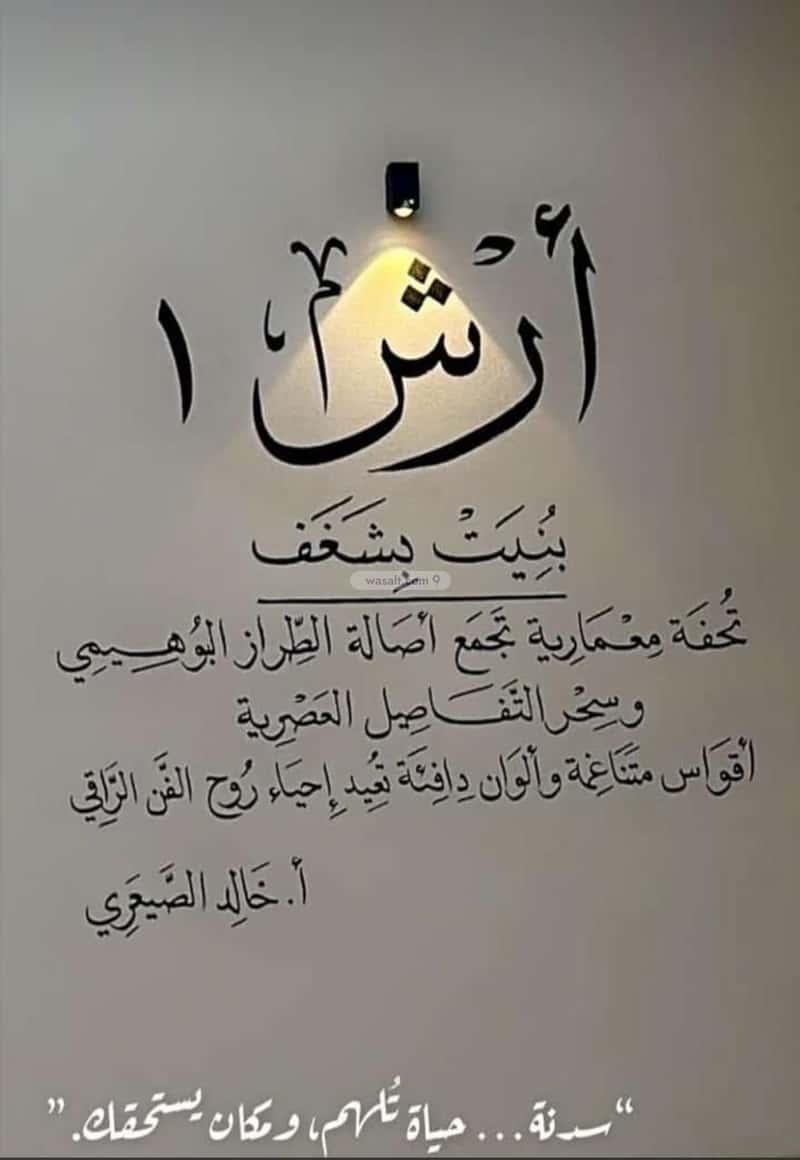 أرْش ١
بُنِيَتْ بِشَغَف
wasalt.com
تُحفَة مِعْمَارِية تَجمَع أصَالة الطِّراز البُوهِيمِي
وسِحْر التَّفَاصِيل العَصْرِية
أقوَاس متَنَاغِمة وألوَان دِافِئَة تعُيِد إِحيَاء رُوح الفَّن الرَّاقِي
أ. خَالِد الصَّيعَرِي
“سدنة... حياة تُلهم، ومكان يستحقك.”